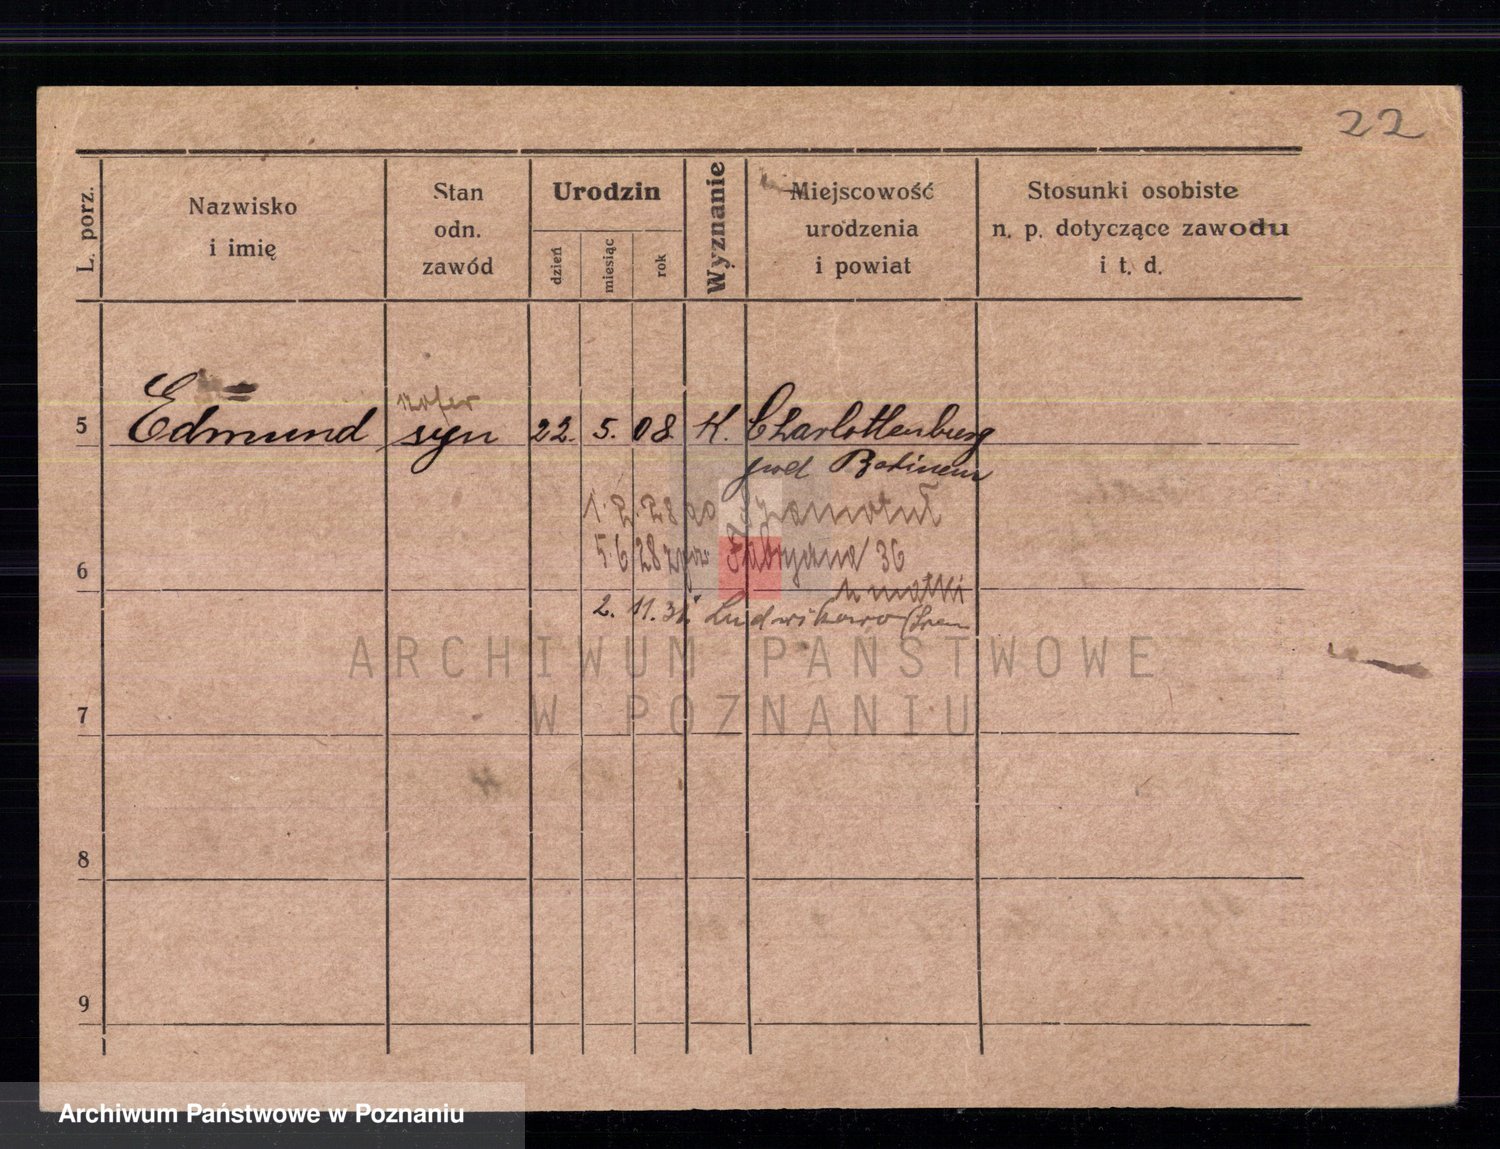 22
L. porz.
Nazwisko
i imię
Stan
odn.
zawód
Urodzin
dzień
miesiąc
rok
Wyznanie
Miejscowość
urodzenia
i powiat
Stosunki osobiste
n. p. dotyczące zawodu
i t. d.
szofer
5 Edmund syn 22. 5. 08. K. Charlottenburg
pod Berlinem
1. 2. 28 do Szamotuł
5. 6 28 36
6
u matki
2. 11. 31. Ludwikowo (Śrem
7
8
9
ARCHIWUM PAŃSTWOWE
W POZNANIU
Archiwum Państwowe w Poznaniu